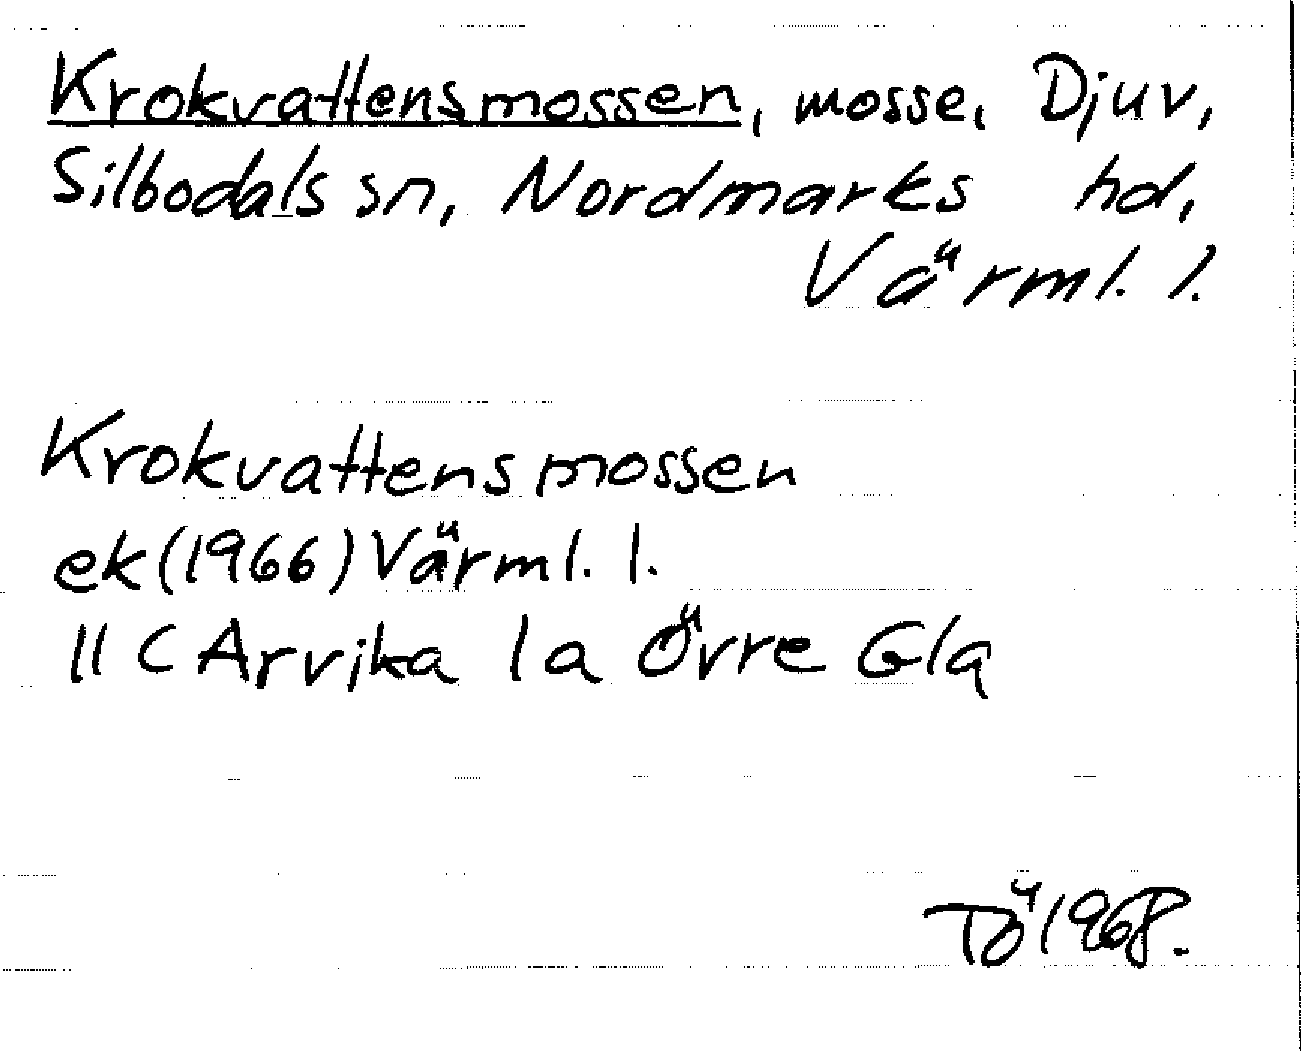 Krokvattensmossen, mosse, Djuv,
Silbodals sn, Nordmarks hd,
Värml. l.
Krokvattensmossen
ek(1966) Värml. l.
11 C Arvika 1a Övre Gla
Tö 1968.